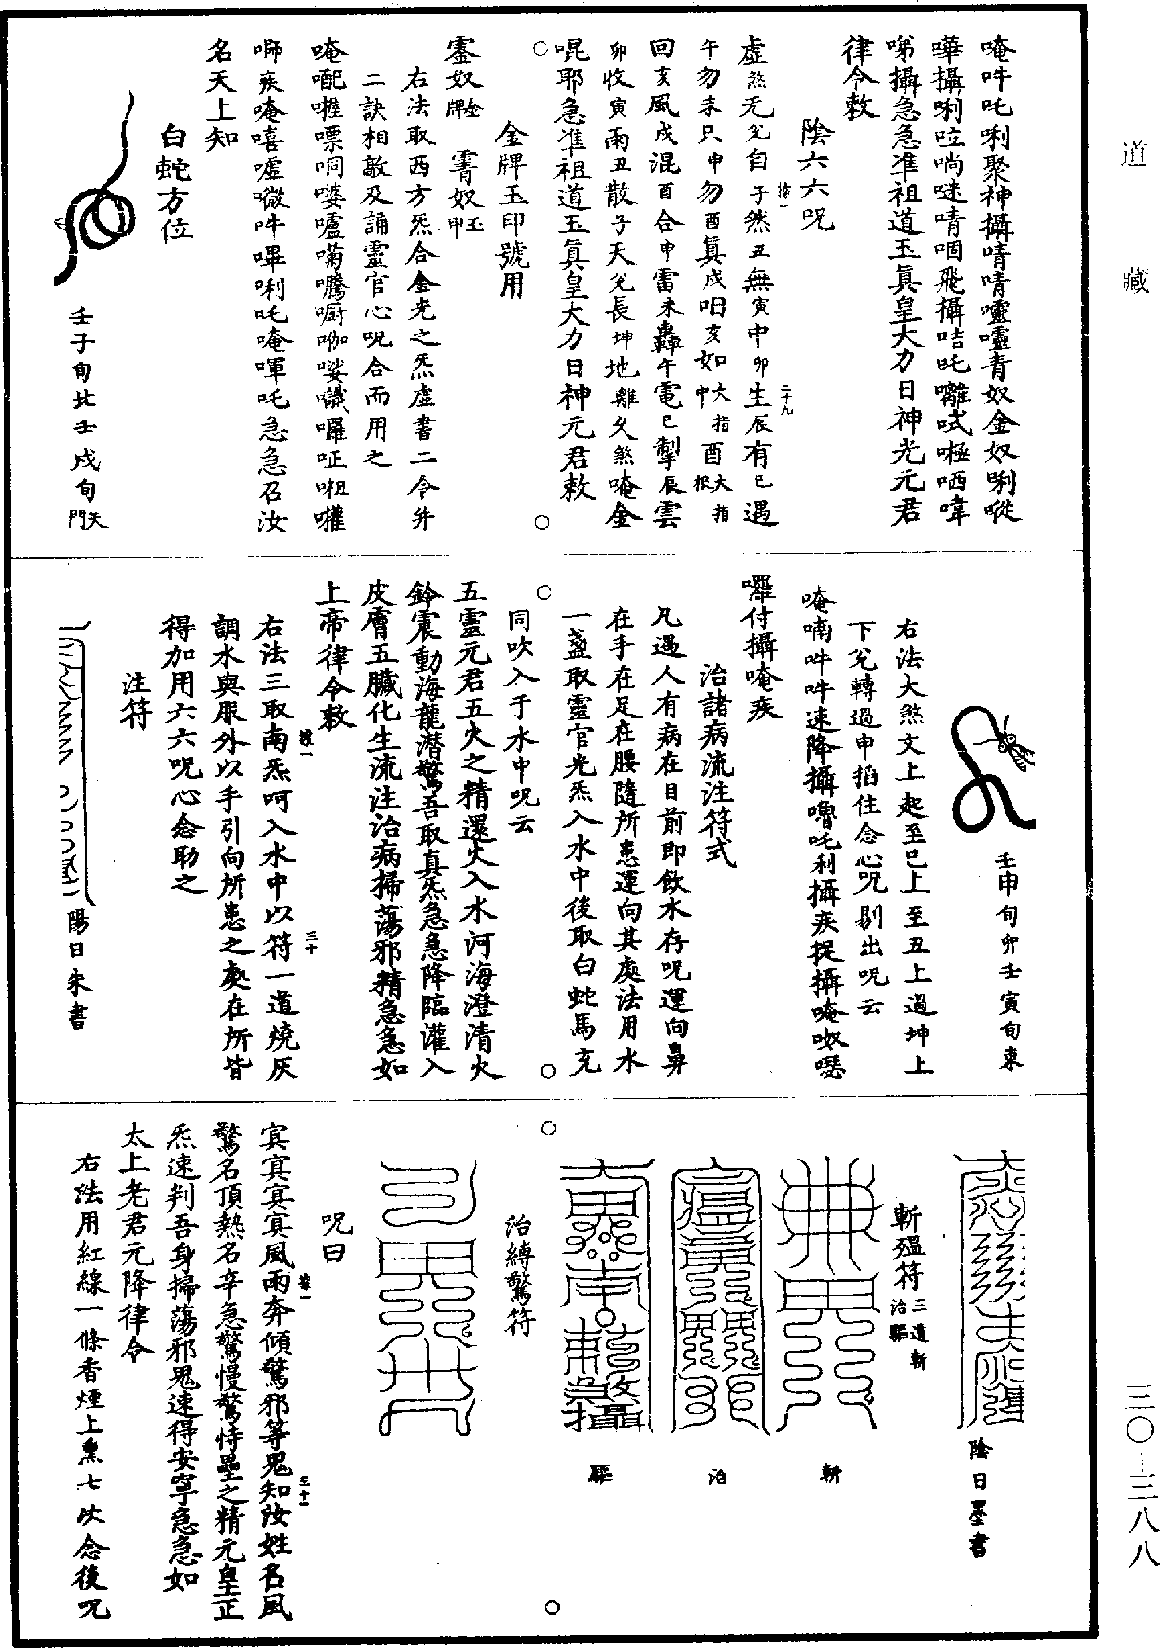 道藏
三〇—三八八
唵吽吒唎聚神攝啨啨𡅖𡅖青奴金奴唎㗰
嘩攝唎㕸啲㖷啨啯飛攝咭吒囄呩㘂哂㖇
㖒攝急急準祖道玉眞皇大力日神光元君
律令敕
陰六六呪
虛煞旡兊自子然丑無寅中卯生辰有巳遇
午勿未只申勿酉眞戍唱亥如大指中酉大指根
回亥風戍混酉合申雷未轟午電巳掣辰雲
卯收寅雨丑散子天兊長坤地雞乆煞唵金
啒耶急準祖道玉眞皇大力日神元君敕
金牌玉印號用
霻奴金牌 霄奴玉甲
右法取西方炁合金光之炁虛書二令并
二訣相敵及誦靈官心呪合而用之
啣疾唵嘻噓𠼱吽嗶唎吒唵喗吒急急召汝
名天上知
白蛇方位
壬子旬北壬戍旬天門
壬申旬卯壬寅旬東
右法大煞文上起至巳上至丑上過坤上
下兊轉過申搯住念心呪剔出呪云
唵喃吽吽速降攝嚕吒利攝疾捉攝唵呶㗭
囉付攝唵疾
治諸病流注符式
凡遇人有病在目前即飲水存呪運向鼻
在手在足在腰隨所患運向其處法用水
一盞取靈官光炁入水中後取白蛇馬充
同吹入于水中呪云
五靈元君五火之精還火入水河海澄清火
鈴震動海龍潛驚吾取真炁急急降臨灌入
皮膚五臟化生流注治病掃蕩邪精急急如
上帝律令敕
右法三取南炁呵入水中以符一道燒灰
調水與服外以手引向所患之處在所皆
得加用六六呪心念助之
注符
陽日朱書
陰日墨書
斬瘟符三道斬治驅
斬
治
驅
治縛驚符
呪曰
寅寅寅寅風雨奔傾驚邪等鬼知汝姓名風
驚名頂熱名辛急驚慢驚恃壘之精元皇正
炁速判吾身掃蕩邪鬼速得安寧急急如
太上老君元降律令
右法用紅線一條香煙上熏七次念後呪